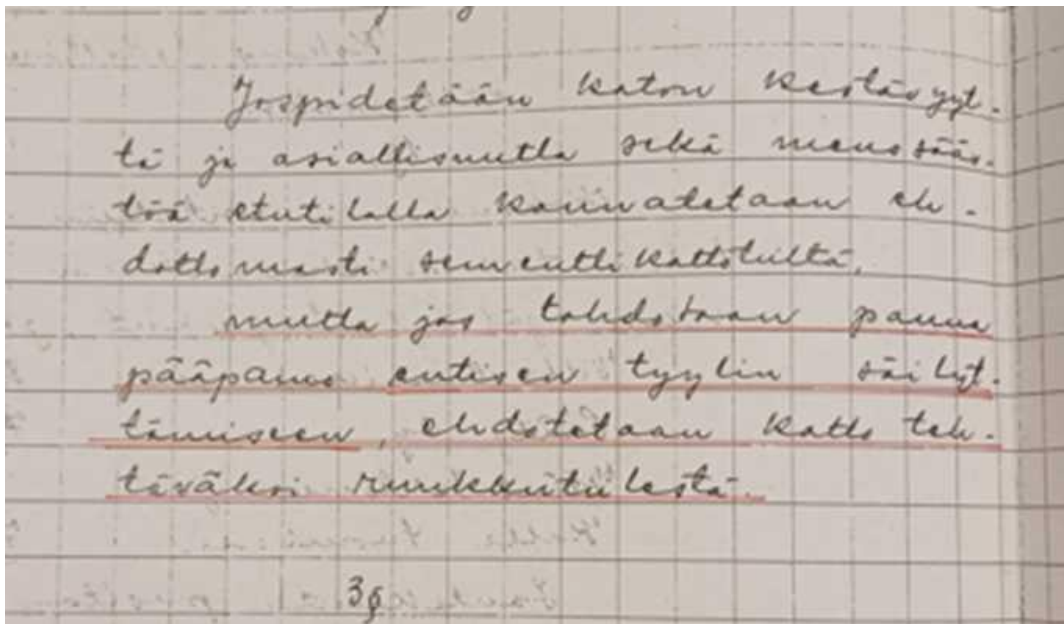 Jospidetään katon kestävyyt-
tä ja asiallisuutta sekä menosääs-
töä etutilalla kannatetaan eh-
dottomasti sementtikattotiiltä,
mutta jos tahdotaan panna
pääpanno entisen tyylin säilyt-
tämiseen, ehdotetaan katto teh-
täväksi ruukkutiilestä.